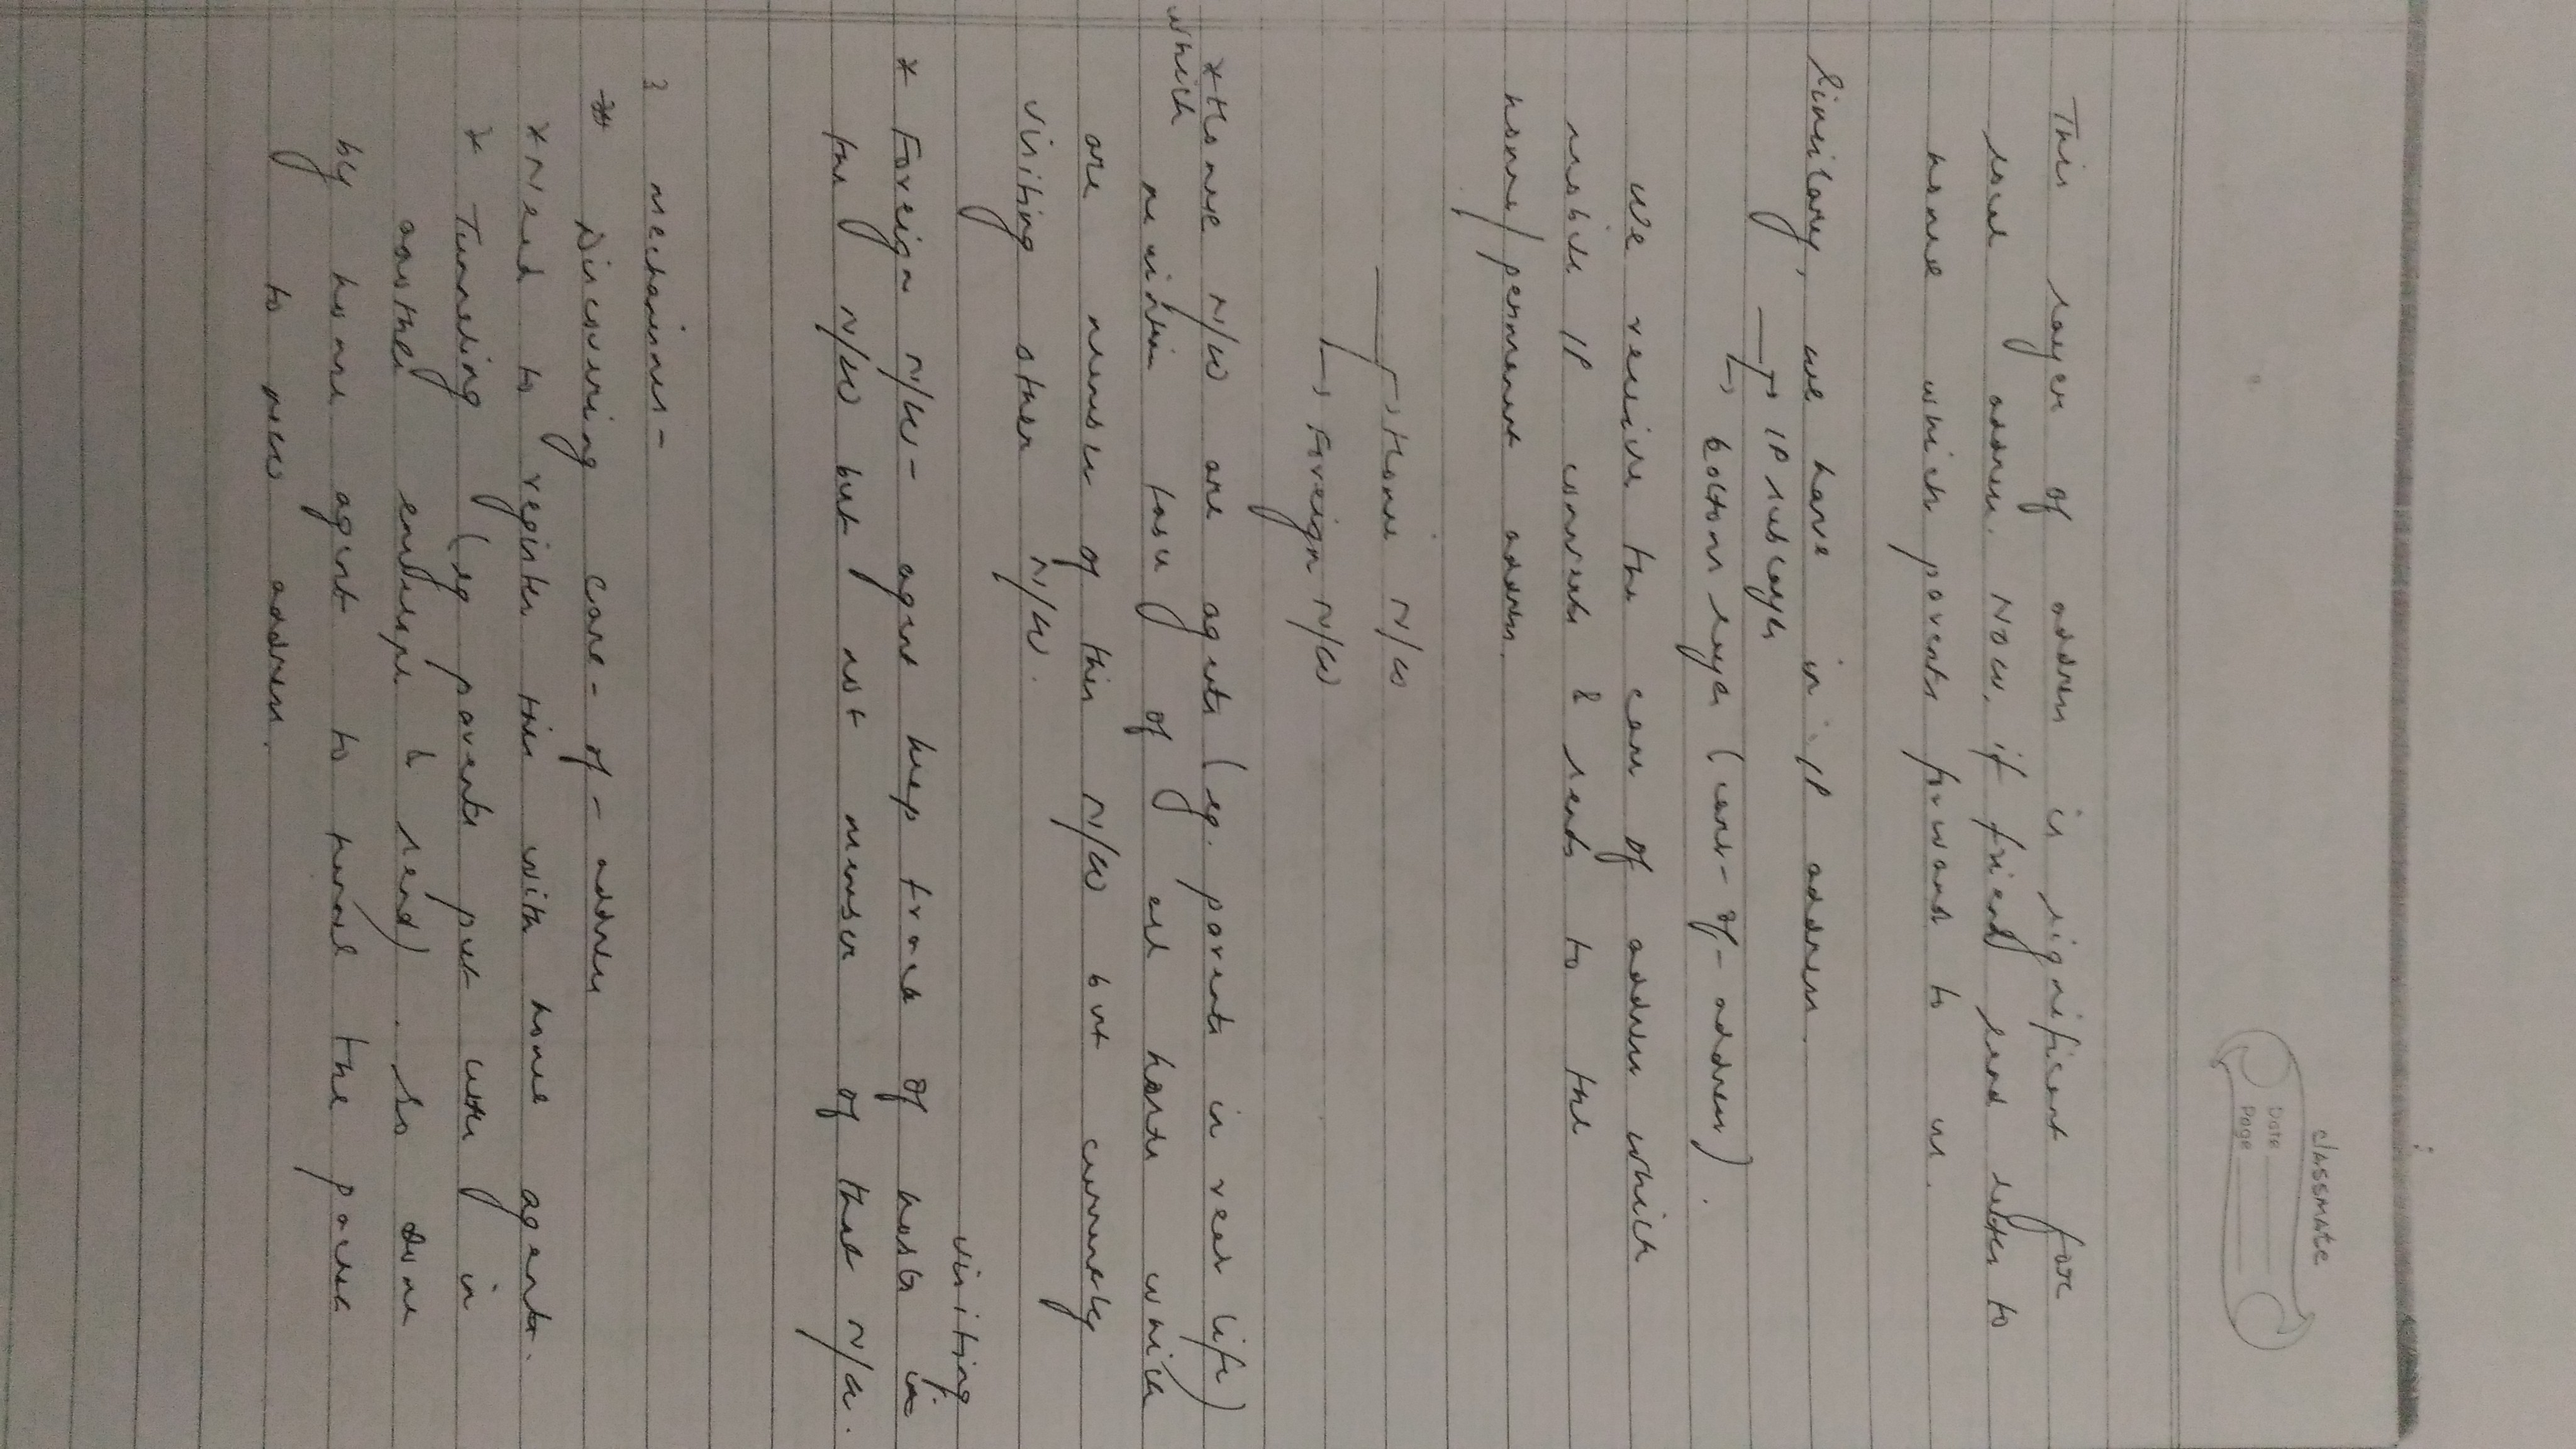 classmate
Date
Page
This layer of address is significant for
local address. Now, if friend send letter to
home which parents forward to us.
Similary, we have in IP address.
→ IP sublayer
→ bottom layer (care-of-address).
We receive the care of address which
mobile IP converts & sends to the
home/permanent address.
→ Home N/W
→ Foreign N/W
* Home N/W are agents (eg. parents in real life)
which
maintain task of all hosts which
are member of this N/W but currently
visiting other N/W.
visiting
* Foreign N/W - agent keep track of hosts in
the N/W but not member of that N/W.
3 Mechanisms -
* Discovering care-of-address
* Need to register this with home agent.
* Tunneling (eg parents put letter in
another envelope & send). So done
by home agent to tunnel the packet
to new address.